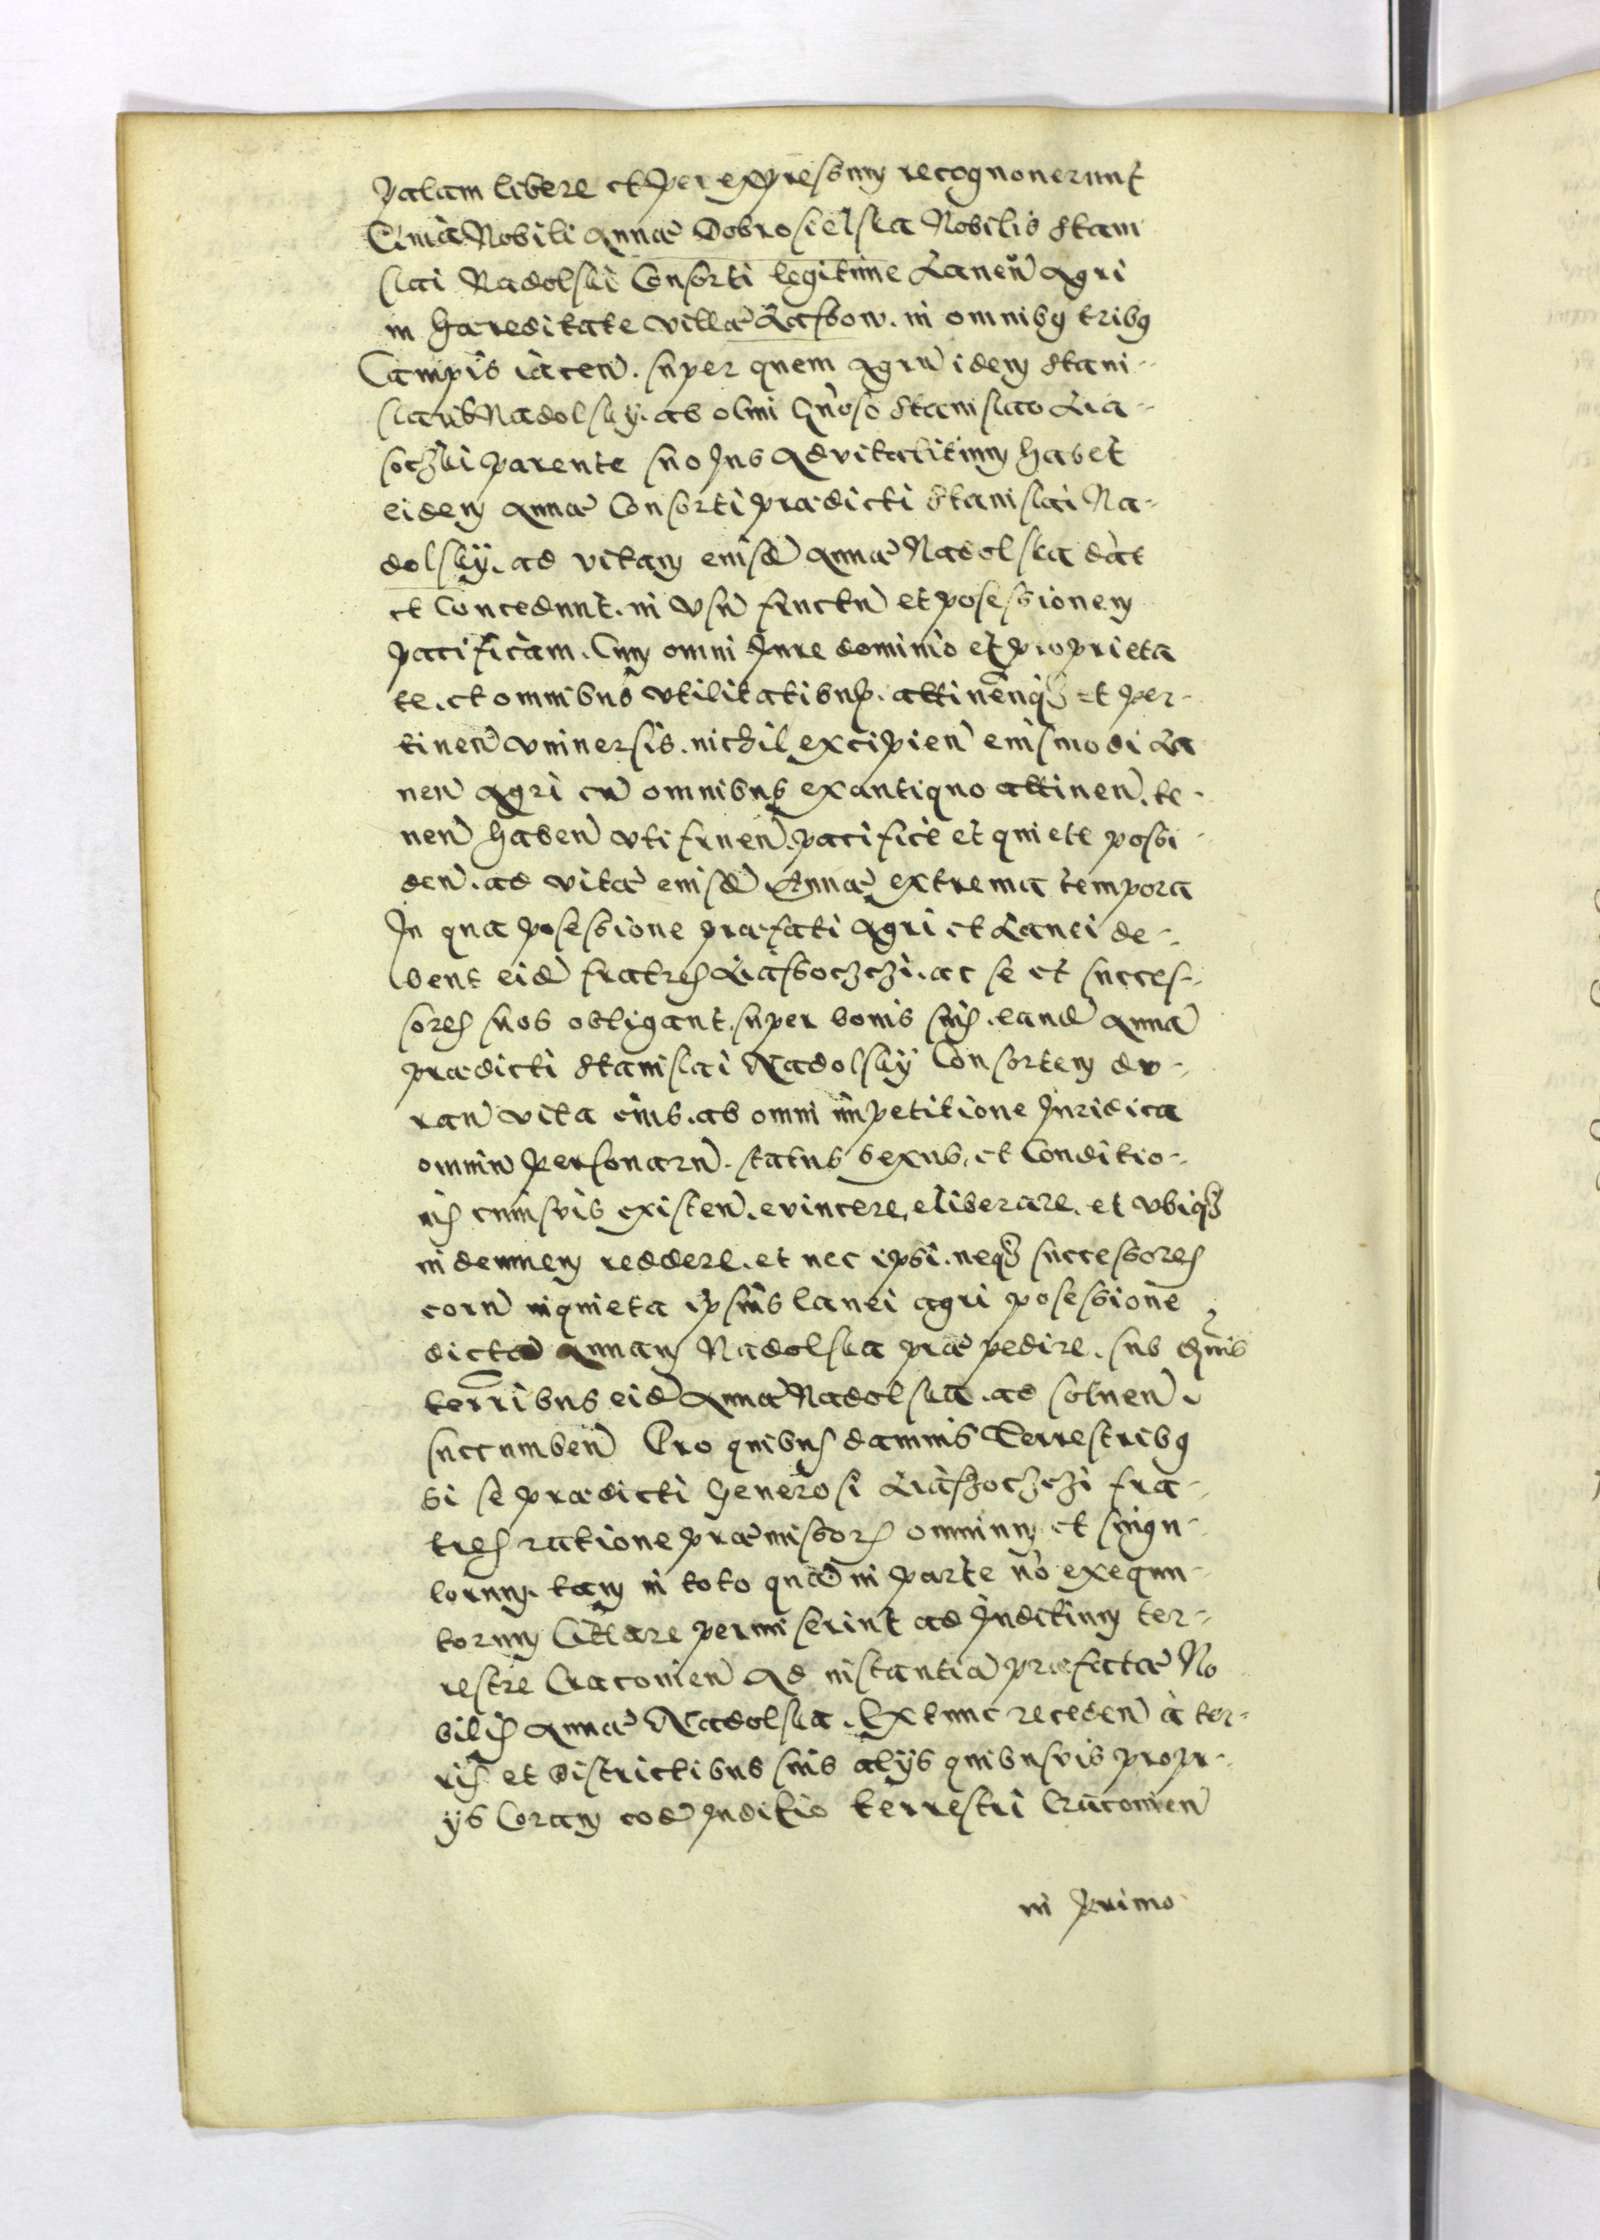 palam libere et per expressum recognoverunt
Quia Nobili Annæ Dobrosielska Nobilis Stani
slai Nadolski Consorti legitime Laneū Agri
in hæreditate villæ Lasbow. in omnibq tribq
Campis iaceñ. super quem Agrū idem Stani-
slaus Nadolsky. ab olim Gn̄oso Stanislao Lia-
soczki parente suo Ius Advitalitium habet
eidem Annæ Consorti prædicti Stanislai Na-
dolsky. ad vitam eiusdē Annæ Nadolska dāt
et Concedunt. in Vsū fructū et posessionem
pacificam. Cum omni Iure dominio et proprieta
te. et omnibus vtilitatibus. attinenq3 et per-
tineñ vniuersis. nichil excipieñ eiusmodi La
neū Agri cū omnibus exantiquo attineñ. te-
neñ habeñ vti frueñ. pacifice et quiete possi-
deñ. ad vitæ eiusdē Annæ extrema tempora
In qua posessione præfati Agri et Lanei de-
bent eidē fratres Liasboczczi. ac se et succes-
sores suos obligant. super bonis suis. eandē Annā
prædicti Stanislai Nadolsky Consortem du-
rañ vita eius. ab omni impetitione Iuridica
omniū personarū. status sexus. et Conditio-
nis cuiusvis existeñ. evincere, eliberare. et vbiq3
indemnem reddere. et nec ipsi. neq3 successores
eorū inquieta ipsius lanei agri posessione
dictā Annam Nadolska præpedire. sub
terribus eidē Annæ Nadolska. ad solueñ.
succumbeñ Pro quibus damnis Terrestribq
si se prædicti Generosi Liaszoczczi fra-
tres ratione præmissor omnium et singu-
lorum. tam in toto quā in parte nō exequu-
torum Cittare permiserint ad Iuditium ter-
restre Cracouieñ Ad instantiā præfatæ No
bilis Annæ Nadolska. Extunc recedeñ à ter-
ris et districtibus suis alijs quibusvis propr-
ijs Coram eodē Iuditio terrestri Cracouieñ
in primo